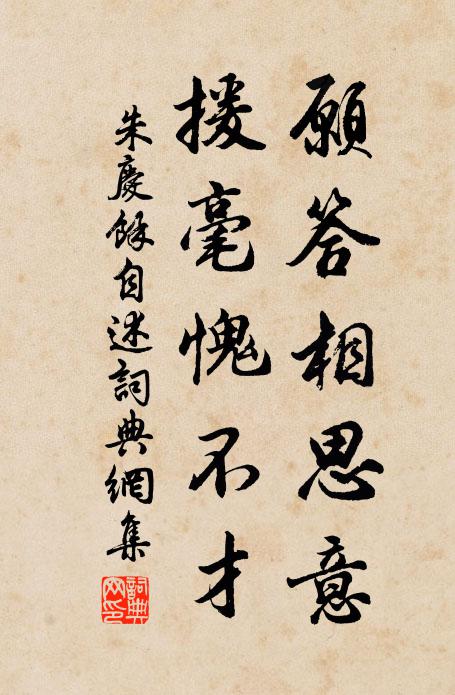 願答相思意
援毫愧不才
朱慶餘自述詞典網集
詞典網印